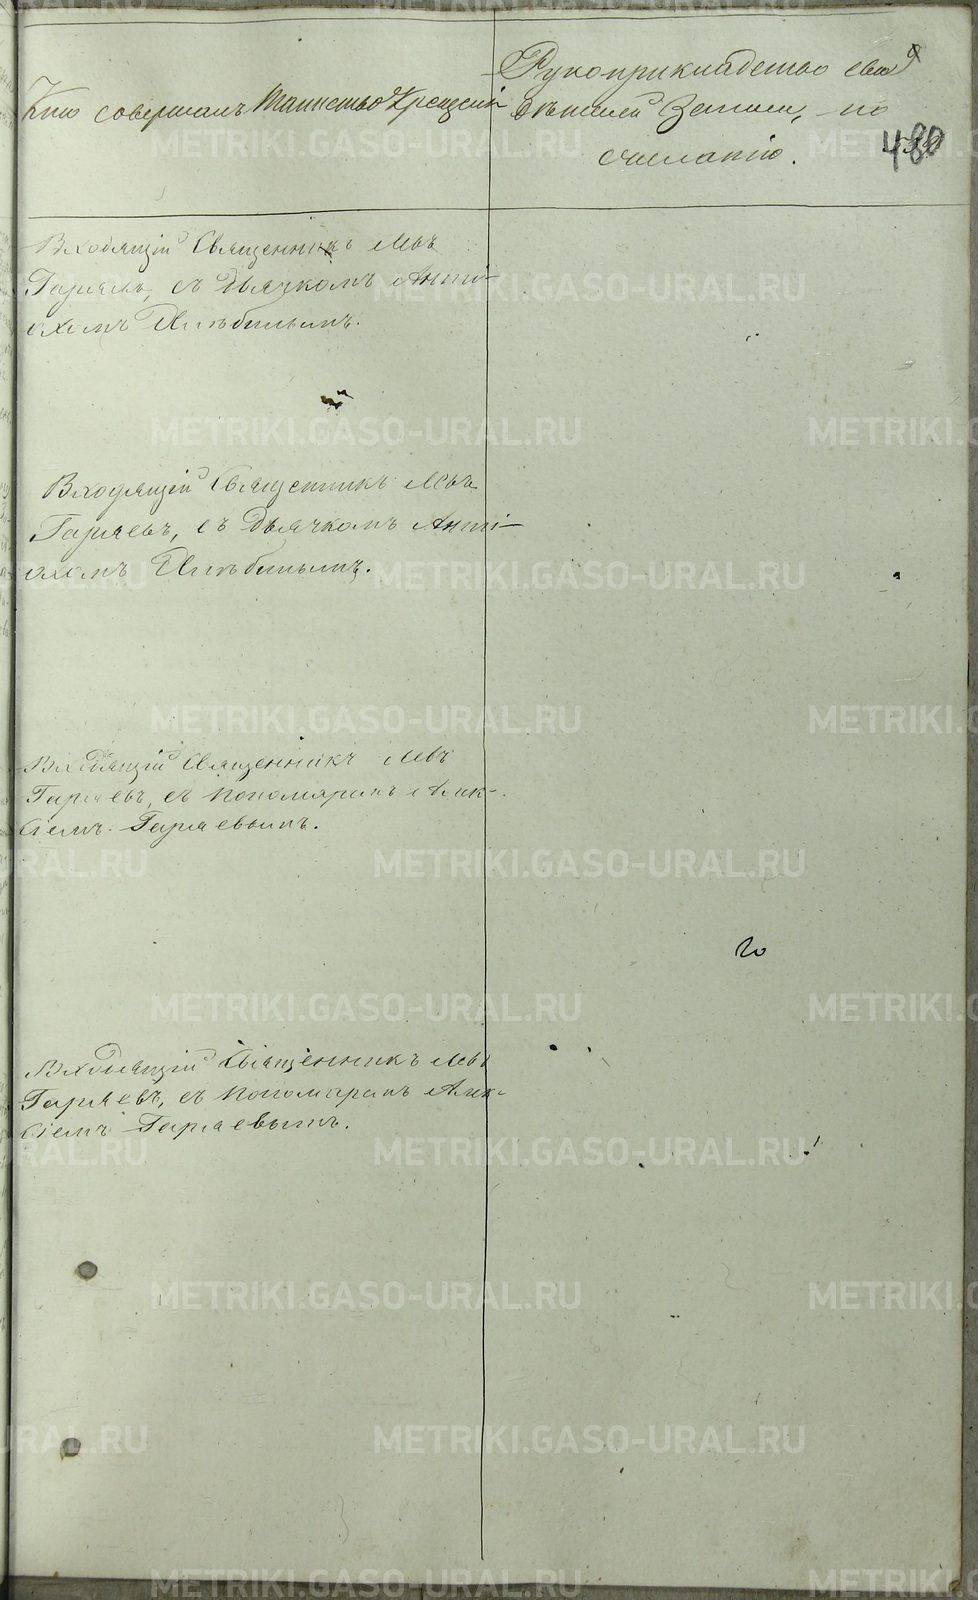 Кто совершалъ Таинство Крещенія
Рукоприкладство свид
ѣтелей записи, по
желанію.
480
Входящій Священникъ Левъ
Гаряевъ, съ Дьячкомъ Анті-
охомъ
Входящій Священникъ Левъ
Гаряевъ, съ Дьячкомъ Анті-
охомъ
Входящій Священникъ Левъ
Гаряевъ, съ пономаремъ Алек-
сіемъ Гаряевымъ.
Входящій Священникъ Левъ
Гаряевъ, съ пономаремъ Алек-
сіемъ Гаряевымъ.
METRIKI.GASO-URAL.RU